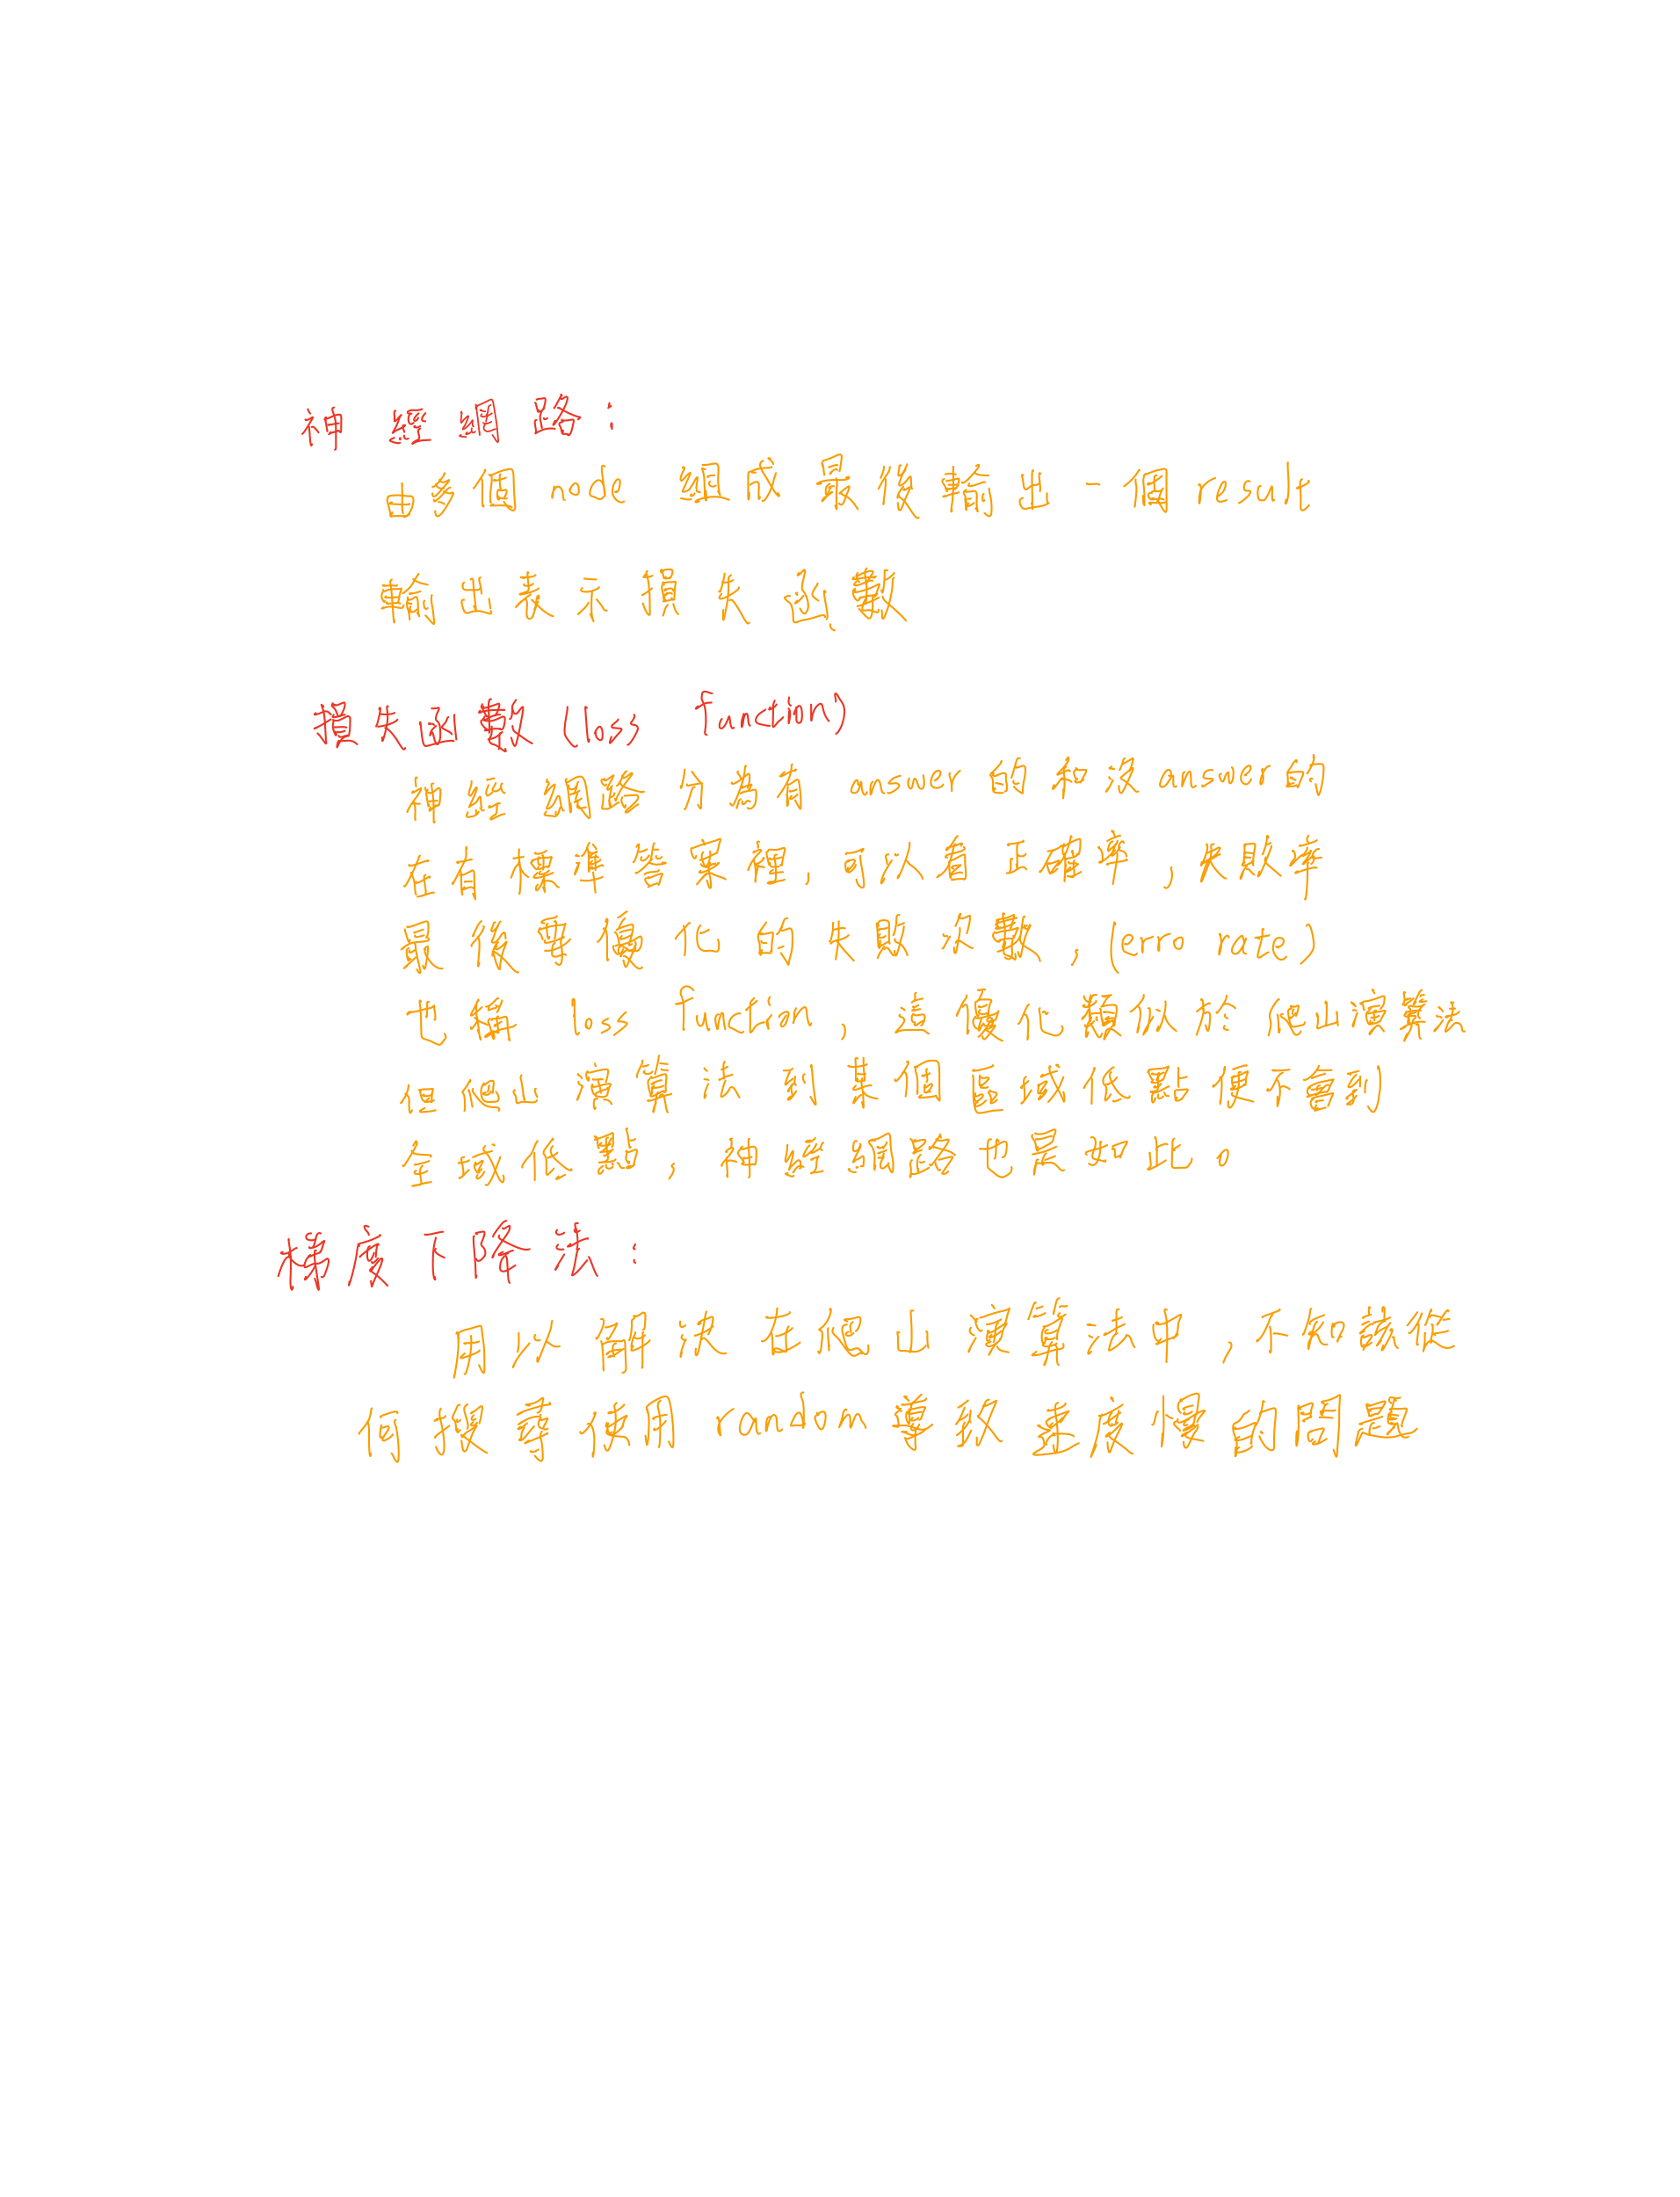 神經網路：
由多個 node 組成最後輸出一個 result
輸出表示損失函數
損失函數 (loss function)
神經網路分為有 answer 的和沒 answer 的
在有標準答案裡, 可以看正確率, 失敗率
最後要優化的失敗次數, (erro rate)
也稱 loss function, 這優化類似於爬山演算法
但爬山演算法到某個區域低點便不會到
全域低點, 神經網路也是如此。
梯度下降法：
用以解決在爬山演算法中, 不知該從
何搜尋使用 random 導致速度慢的問題